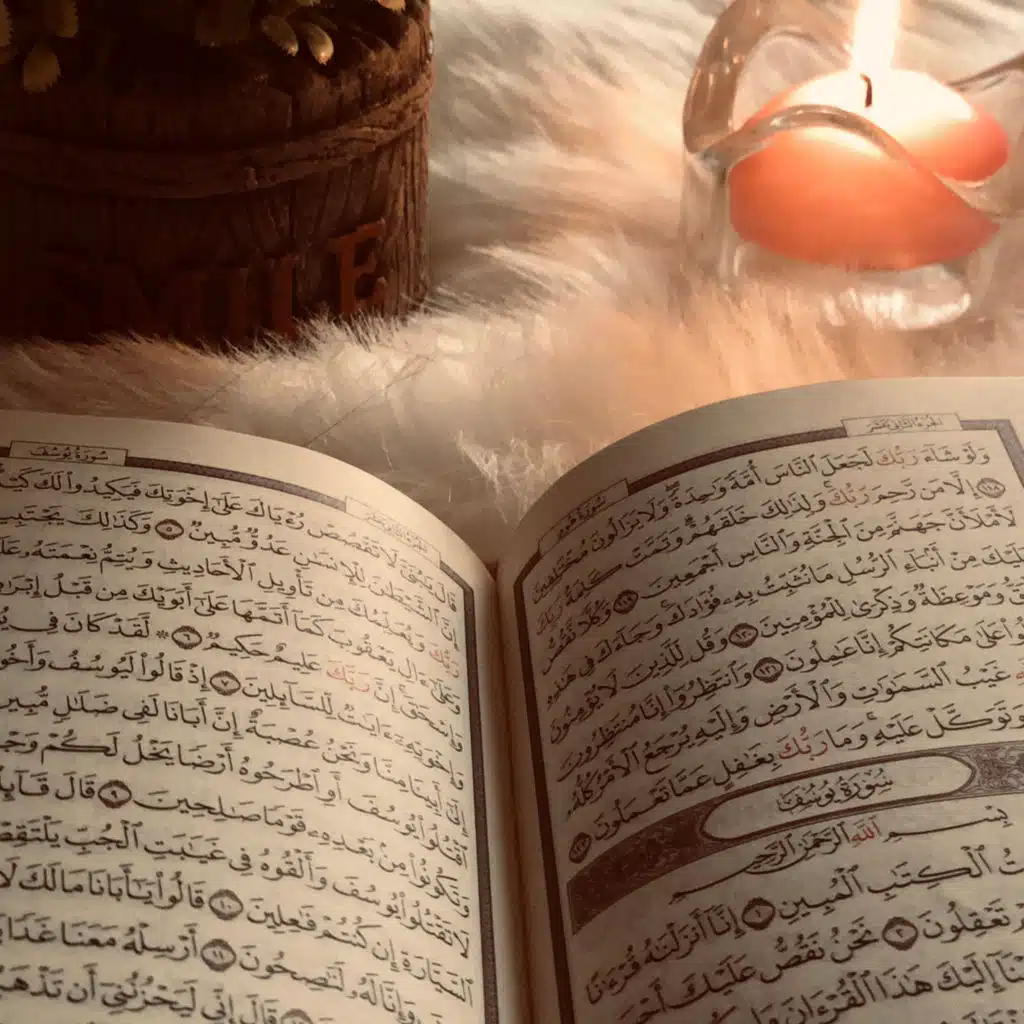 الجزء الثاني عشر
سورة هود
وَلَوْ شَآءَ رَبُّكَ لَجَعَلَ ٱلنَّاسَ أُمَّةً وَٰحِدَةً ۖ وَلَا يَزَالُونَ مُخْتَلِفِينَ
١١٨ إِلَّا مَن رَّحِمَ رَبُّكَ ۚ وَلِذَٰلِكَ خَلَقَهُمْ ۗ وَتَمَّتْ كَلِمَةُ رَبِّكَ
لَأَمْلَأَنَّ جَهَنَّمَ مِنَ ٱلْجِنَّةِ وَٱلنَّاسِ أَجْمَعِينَ ١١٩ وَكُلًّا نَّقُصُّ
عَلَيْكَ مِنْ أَنۢبَآءِ ٱلرُّسُلِ مَا نُثَبِّتُ بِهِۦ فُؤَادَكَ ۚ وَجَآءَكَ فِى هَٰذِهِ
وَمَوْعِظَةٌ وَذِكْرَىٰ لِلْمُؤْمِنِينَ ١٢٠ وَقُل لِّلَّذِينَ لَا يُؤْمِنُونَ
عَلَىٰ مَكَانَتِكُمْ إِنَّا عَٰمِلُونَ ١٢١ وَٱنتَظِرُوٓا۟ إِنَّا مُنتَظِرُونَ
غَيْبُ ٱلسَّمَٰوَٰتِ وَٱلْأَرْضِ وَإِلَيْهِ يُرْجَعُ ٱلْأَمْرُ كُلُّهُۥ
وَتَوَكَّلْ عَلَيْهِ ۚ وَمَا رَبُّكَ بِغَٰفِلٍ عَمَّا تَعْمَلُونَ ١٢٣
سُورَةُ يُوسُفَ
بِسْمِ ٱللَّهِ ٱلرَّحْمَٰنِ ٱلرَّحِيمِ
ٱلْكِتَٰبِ ٱلْمُبِينِ ١ إِنَّآ أَنزَلْنَٰهُ قُرْءَٰنًا
تَعْقِلُونَ ٢ نَحْنُ نَقُصُّ عَلَيْكَ
إِلَيْكَ هَٰذَا ٱلْقُرْءَانَ
الجزء الثاني عشر
سورة يوسف
قَالَ يَٰبُنَىَّ لَا تَقْصُصْ رُءْيَاكَ عَلَىٰٓ إِخْوَتِكَ فَيَكِيدُوا۟ لَكَ
إِنَّ ٱلشَّيْطَٰنَ لِلْإِنسَٰنِ عَدُوٌّ مُّبِينٌ ٥ وَكَذَٰلِكَ يَجْتَبِيكَ
رَبُّكَ وَيُعَلِّمُكَ مِن تَأْوِيلِ ٱلْأَحَادِيثِ وَيُتِمُّ نِعْمَتَهُۥ
وَعَلَىٰٓ ءَالِ يَعْقُوبَ كَمَآ أَتَمَّهَا عَلَىٰٓ أَبَوَيْكَ مِن قَبْلُ
وَإِسْحَٰقَ ۚ إِنَّ رَبَّكَ عَلِيمٌ حَكِيمٌ ٦ ۞ لَّقَدْ كَانَ فِى
وَإِخْوَتِهِۦٓ ءَايَٰتٌ لِّلسَّآئِلِينَ ٧ إِذْ قَالُوا۟ لَيُوسُفُ وَأَخُوهُ
إِلَىٰٓ أَبِينَا مِنَّا وَنَحْنُ عُصْبَةٌ إِنَّ أَبَانَا لَفِى ضَلَٰلٍ مُّبِينٍ
ٱقْتُلُوا۟ يُوسُفَ أَوِ ٱطْرَحُوهُ أَرْضًا يَخْلُ لَكُمْ وَجْهُ
وَتَكُونُوا۟ مِنۢ بَعْدِهِۦ قَوْمًا صَٰلِحِينَ ٩ قَالَ قَآئِلٌ
لَا تَقْتُلُوا۟ يُوسُفَ وَأَلْقُوهُ فِى غَيَٰبَتِ ٱلْجُبِّ يَلْتَقِطْهُ
ٱلسَّيَّارَةِ إِن كُنتُمْ فَٰعِلِينَ ١٠ قَالُوا۟ يَٰٓأَبَانَا مَا لَكَ لَا
وَإِنَّا لَهُۥ لَنَٰصِحُونَ ١١ أَرْسِلْهُ مَعَنَا غَدًا
قَالَ إِنِّى لَيَحْزُنُنِىٓ أَن تَذْهَبُوا۟
SMILE